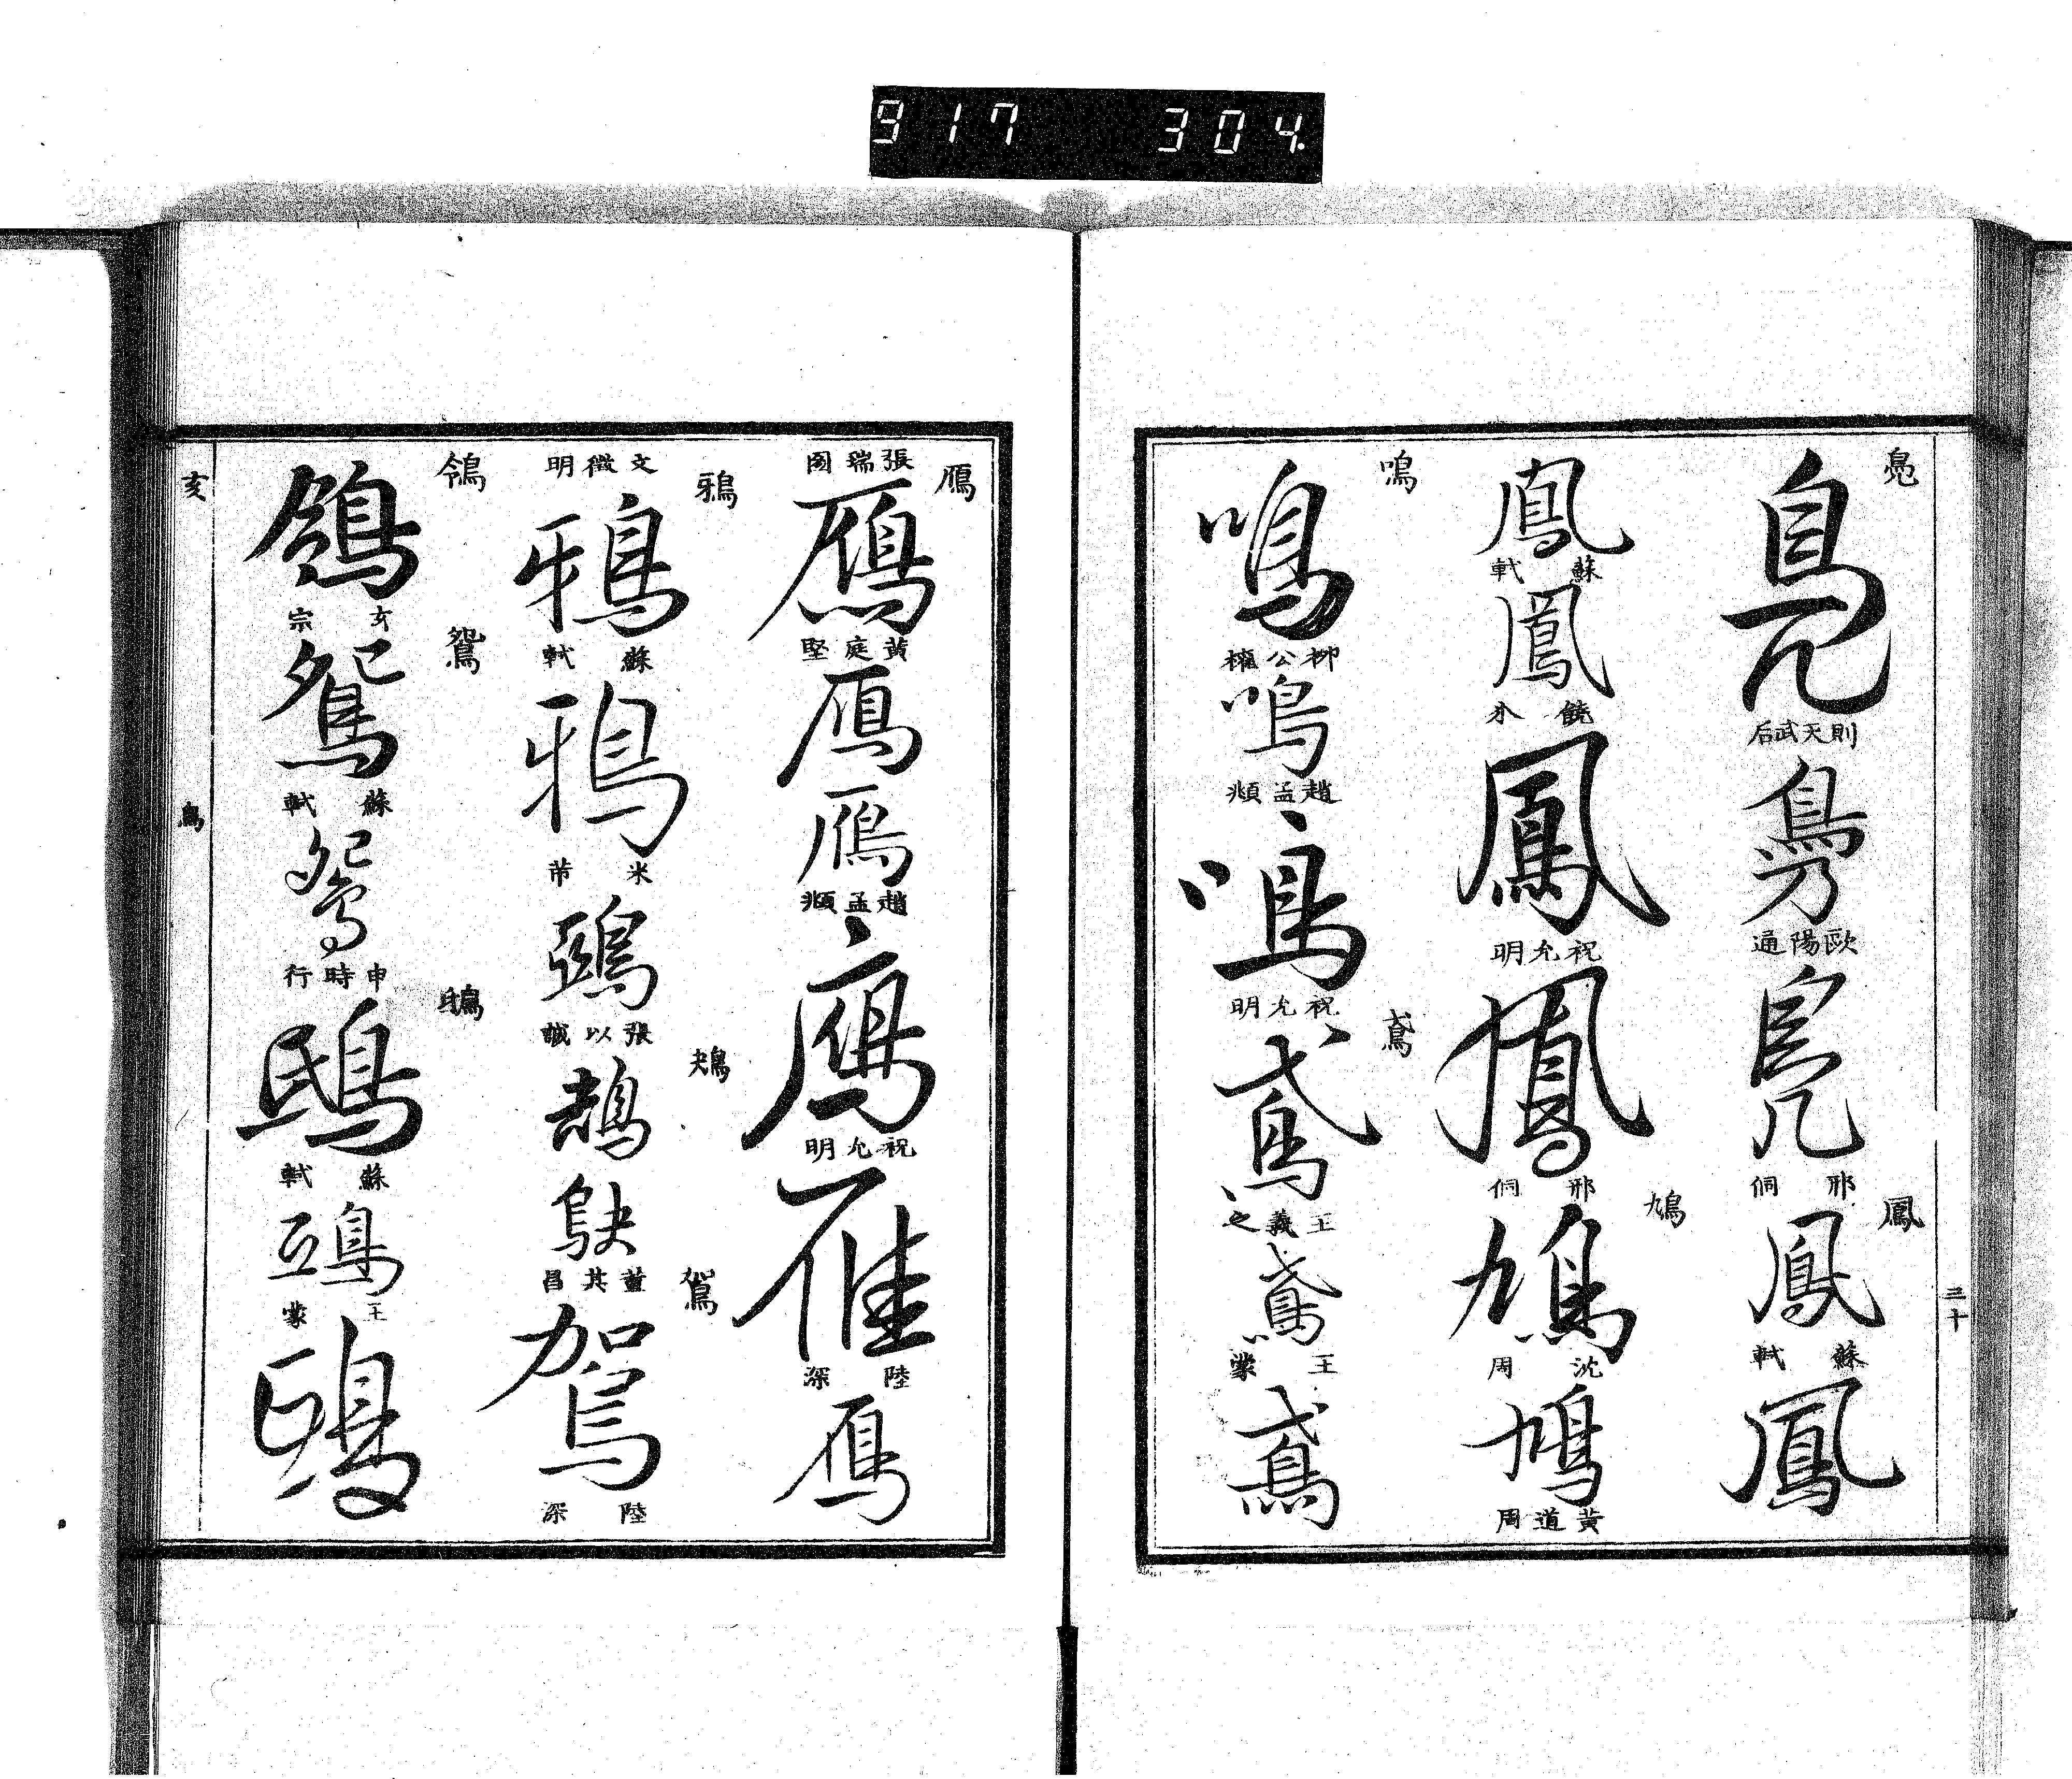 917 304
鳧
鳧
則天武后
鳧
歐陽通
鳧
邢侗
鳳
鳳
蘇軾
鳳
三十
鳳
蘇軾
鳳
饒介
鳳
祝允明
鳳
邢侗
鳩
鳩
沈周
鳩
黃道周
鳴
鳴
柳公權
鳴
趙孟頫
鳴
祝允明
鳶
鳶
王羲之
鳶
王蒙
鳶
鴈
張瑞圖
鴈
黃庭堅
鴈
鴈
趙孟頫
鴈
祝允明
雁
陸深
鴈
鴉
文徵明
鴉
蘇軾
鴉
米芾
鵶
張以誠
鴂
鴂
董其昌
鴐
鴐
陸深
鴒
鴒
玄宗
鴛
鴛
蘇軾
鴛
申時行
鴟
鴟
蘇軾
鴟
王蒙
鴟
亥
鳥